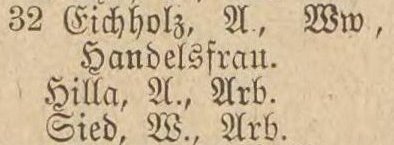 32 Eichholz, A., Ww,
Handelsfrau.
Hilla, A., Arb.
Sied, W., Arb.